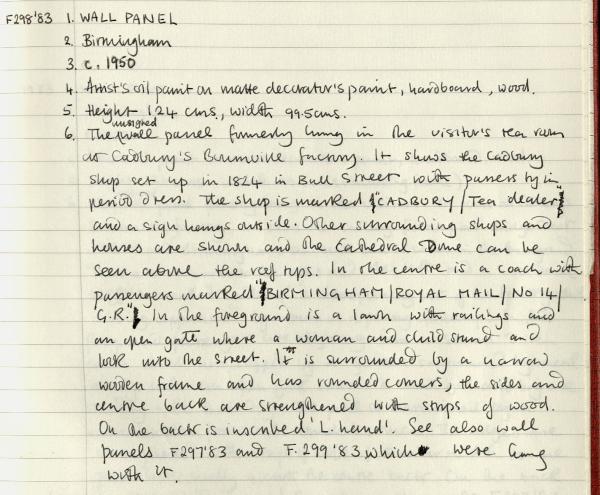 F298'83 1. WALL PANEL
2. Birmingham
3. c. 1950
4. Artist's oil paint on matte decorator's paint, hardboard, wood.
5. Height 124 cms, width 99.5cms.
unsigned
6. The wall panel formerly hung in the visitor's tea room
at Cadbury's Bournville factory. It shows the Cadbury
shop set up in 1824 in Bull Street with passers by in
period dress. The shop is marked "CADBURY/Tea dealer"
and a sign hangs outside. Other surrounding shops and
houses are shown and the Cathedral Dome can be
seen above the roof tops. In the centre is a coach with
passengers marked "BIRMINGHAM/ROYAL MAIL/No 14/
G.R." In the foreground is a lawn with railings and
an open gate where a woman and child stand and
look into the street. It is surrounded by a narrow
wooden frame and has rounded corners, the sides and
centre back are strengthened with strips of wood.
On the back is inscribed 'L. hand'. See also wall
panels F297'83 and F.299'83 which were hung
with it.